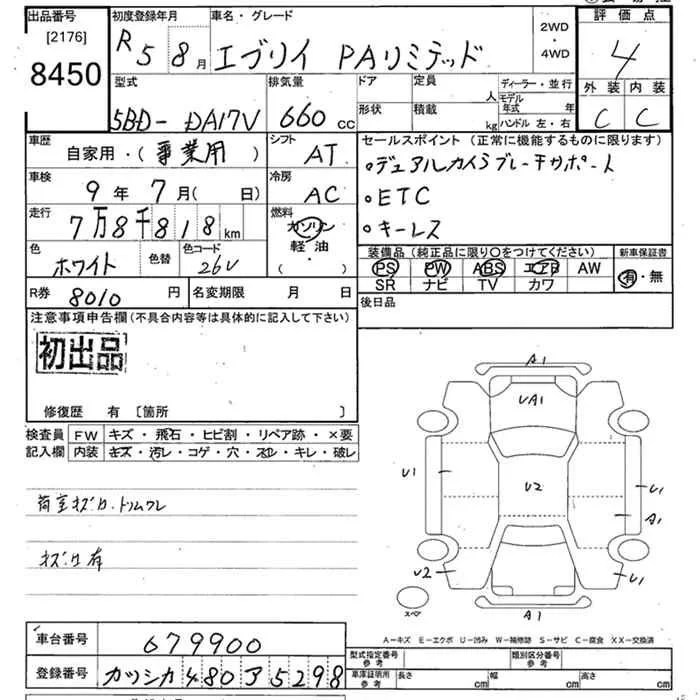 出品番号
[2176]
8450
初度登録年月
R 5 8月
車名・グレード
エブリイ PAリミテッド
2WD
・
4WD
評価点
4
外装 内装
C C
型式
5BD-DA17V
排気量
660 cc
ドア
形状
定員
人
積載
kg
ディーラー・並行
モデル年式 年
ハンドル 左・右
車歴
自家用・(事業用)
シフト
AT
車検
9年 7月( 日)
冷房
AC
走行
7万8千818km
燃料
ガソリン
軽・油
( )
色
ホワイト
色替
色コード
26V
R券 8010 円
名変期限 月 日
セールスポイント (正常に機能するものに限ります)
•デュアルカメラブレーキサポート
•ETC
•キーレス
装備品 (純正品に限り○をつけてください)
PS PW ABS エアB AW
SR ナビ TV カワ
新車保証書
有・無
後日品
注意事項申告欄(不具合内容等は具体的に記入して下さい)
初出品
修復歴 有 〔箇所 〕
検査員記入欄
FW キズ・飛石・ヒビ割・リペア跡・×要
内装 キズ・汚レ・コゲ・穴・スレ・キレ・破レ
荷室キズカ・トリムワレ
キズ・ワ有
A1
UA1
U1
U2
U1
A1
U2
U1
A1
スペア
A-キズ E-エクボ U-凹み W-補修跡 S-サビ C-腐食 XX-交換済
車台番号 679900
登録番号 カツシカ480ア5298
型式指定番号
参考
類別区分番号
参考
車庫証明用
参考
長さ cm
幅 cm
高さ cm